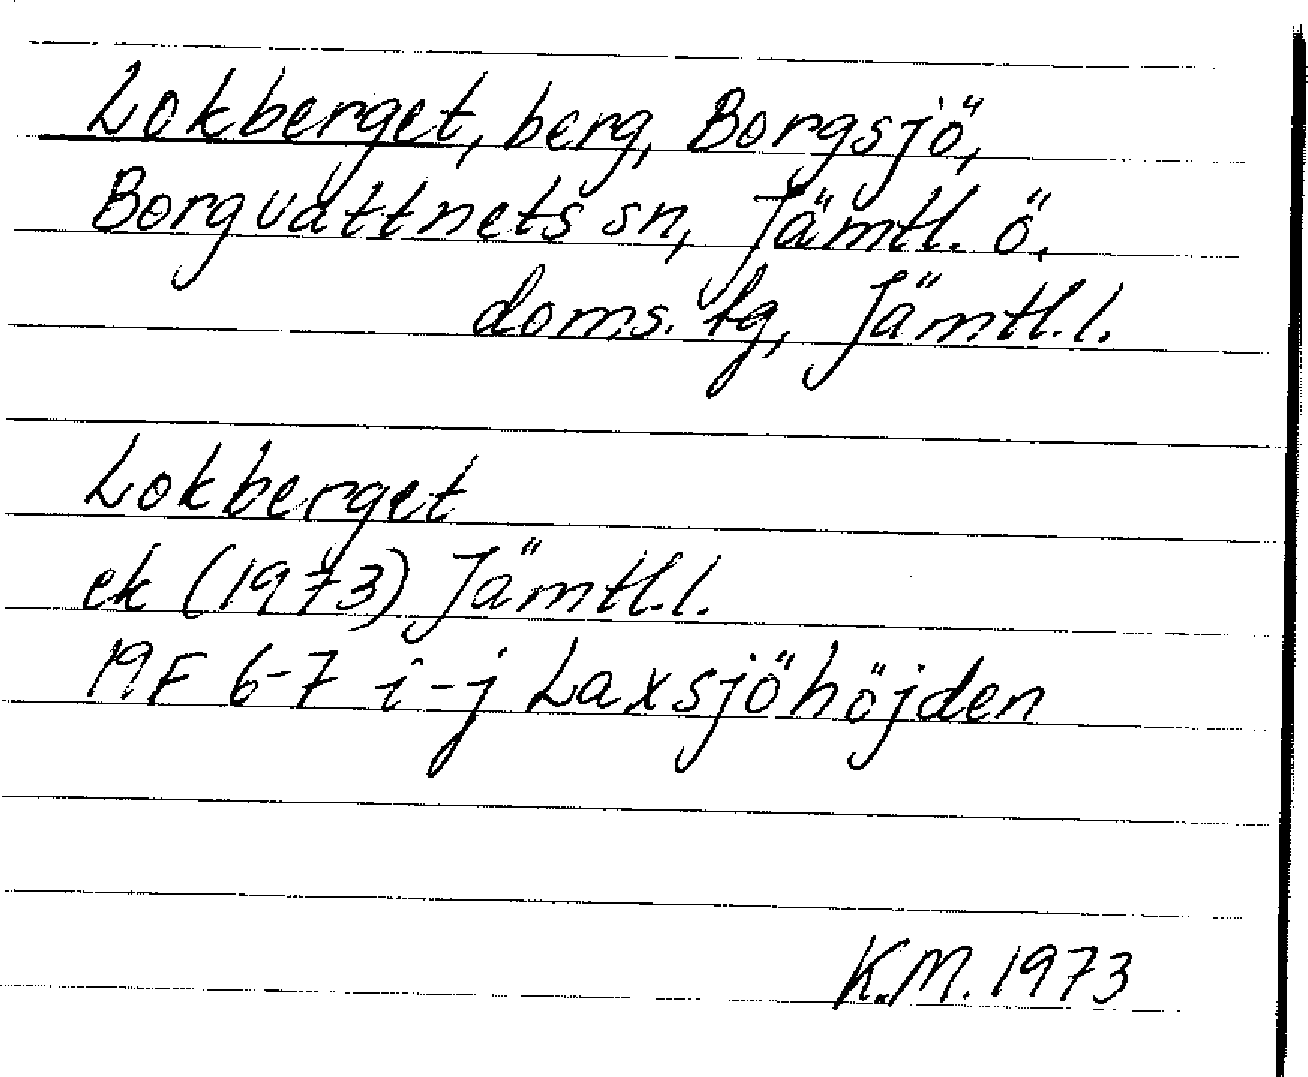 Lokberget, berg, Borgsjö,
Borgvattnets sn, Jämtl. ö.
doms. tg, Jämtl.l.
Lokberget
ek (1973) Jämtl.l.
19F 6-7 i-j Laxsjöhöjden
K.M. 1973